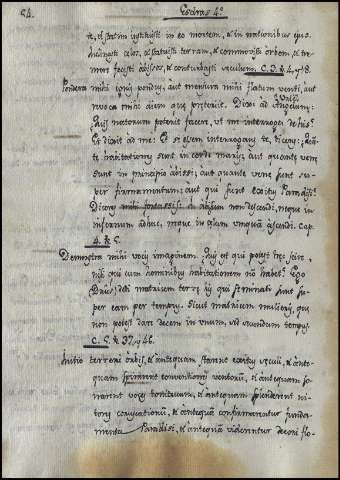 54. Esdras 4º
te, et statim instituisti in eo mortem, et in nationibus ejus.
Inclinasti celos, et statuisti terram, et commovisti orbem, et tre-
mere fecisti abissos, et conturbasti seculum. C. 3. & 4. 7. 8.
Pondera mihi ignis pondus, aut mensura mihi flatum venti, aut
revoca mihi diem que preteriit. Dixi ad Angelum:
Quis natorum poterit facere, ut me interrogas de his?
Et dixit ad me: Et si essem interrogans te, dicens:
te habitationes sunt in corde maris, aut quante vene
sunt in principio abissi, aut quante vene sunt su-
per firmamentum, aut qui sunt exitus Paradisi?
Diceres mihi fortassis: in abissum non descendi, neque in
infernum adhuc, neque in celum unquam ascendi. Cap.
4. & 5.
Demonstra mihi vocis imaginem. Quis est qui potest scire,
nisi qui cum hominibus habitationem non habet. Ego
dedi matricem terre iis qui seminati sunt su-
per eam per tempus. Sicut matricem mulieris, que
non potest dare decem in unum, sed secundum tempus.
C. 5. & 37, 46.
Initio terreni orbis, et antequam starent exitus seculi, et ante-
quam spirarent conventiones ventorum, et antequam so-
narent voces tonitruum, et antequam splenderent ni-
tores coruscationum, et antequam confirmarentur funda-
menta Paradisi, et antequam viderentur decori flo-